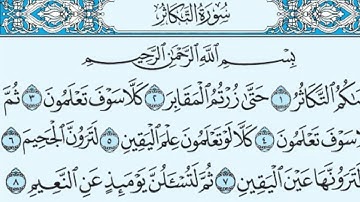 سُورَةُ التَّكَاثُرِ
بِسْمِ ٱللَّهِ ٱلرَّحْمَٰنِ ٱلرَّحِيمِ
ـكُمُ ٱلتَّكَاثُرُ ١ حَتَّىٰ زُرْتُمُ ٱلْمَقَابِرَ ٢ كَلَّا سَوْفَ تَعْلَمُونَ ٣ ثُمَّ
سَوْفَ تَعْلَمُونَ ٤ كَلَّا لَوْ تَعْلَمُونَ عِلْمَ ٱلْيَقِينِ ٥ لَتَرَوُنَّ ٱلْجَحِيمَ ٦
لَتَرَوُنَّهَا عَيْنَ ٱلْيَقِينِ ٧ ثُمَّ لَتُسْـَٔلُنَّ يَوْمَئِذٍ عَنِ ٱلنَّعِيمِ ٨